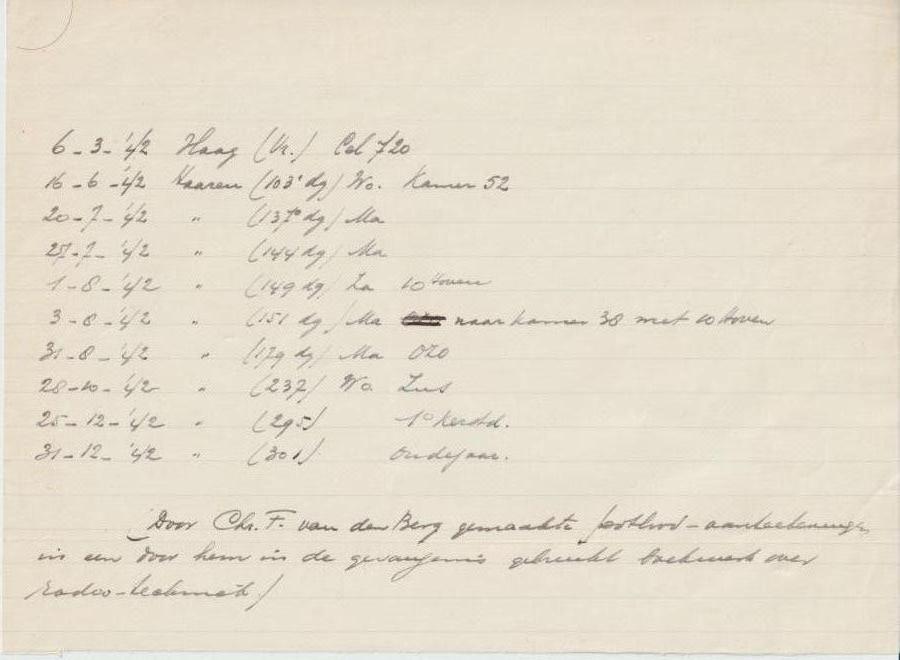 6-3-'42 Haag (Vr.) Cel 720
16-6-'42 Haaren (103e dg) Wo. Kamer 52
20-7-'42 " (137e dg) Ma
27-7-'42 " (144 dg) Ma
1-8-'42 " (149 dg) Za 10 Hoven
3-8-'42 " (151 dg) Ma naar kamer 38 met 10 Hoven
31-8-'42 " (179 dg) Ma OZO
28-10-'42 " (237) Wo. Zus
25-12-'42 " (295) 1e Kerstd.
31-12-'42 " (301) Oudejaar.
(Door Chr. F. van den Berg gemaakte potlood-aanteekeningen
in een door hem in de gevangenis gebruikt boekwerk over
radio-techniek)